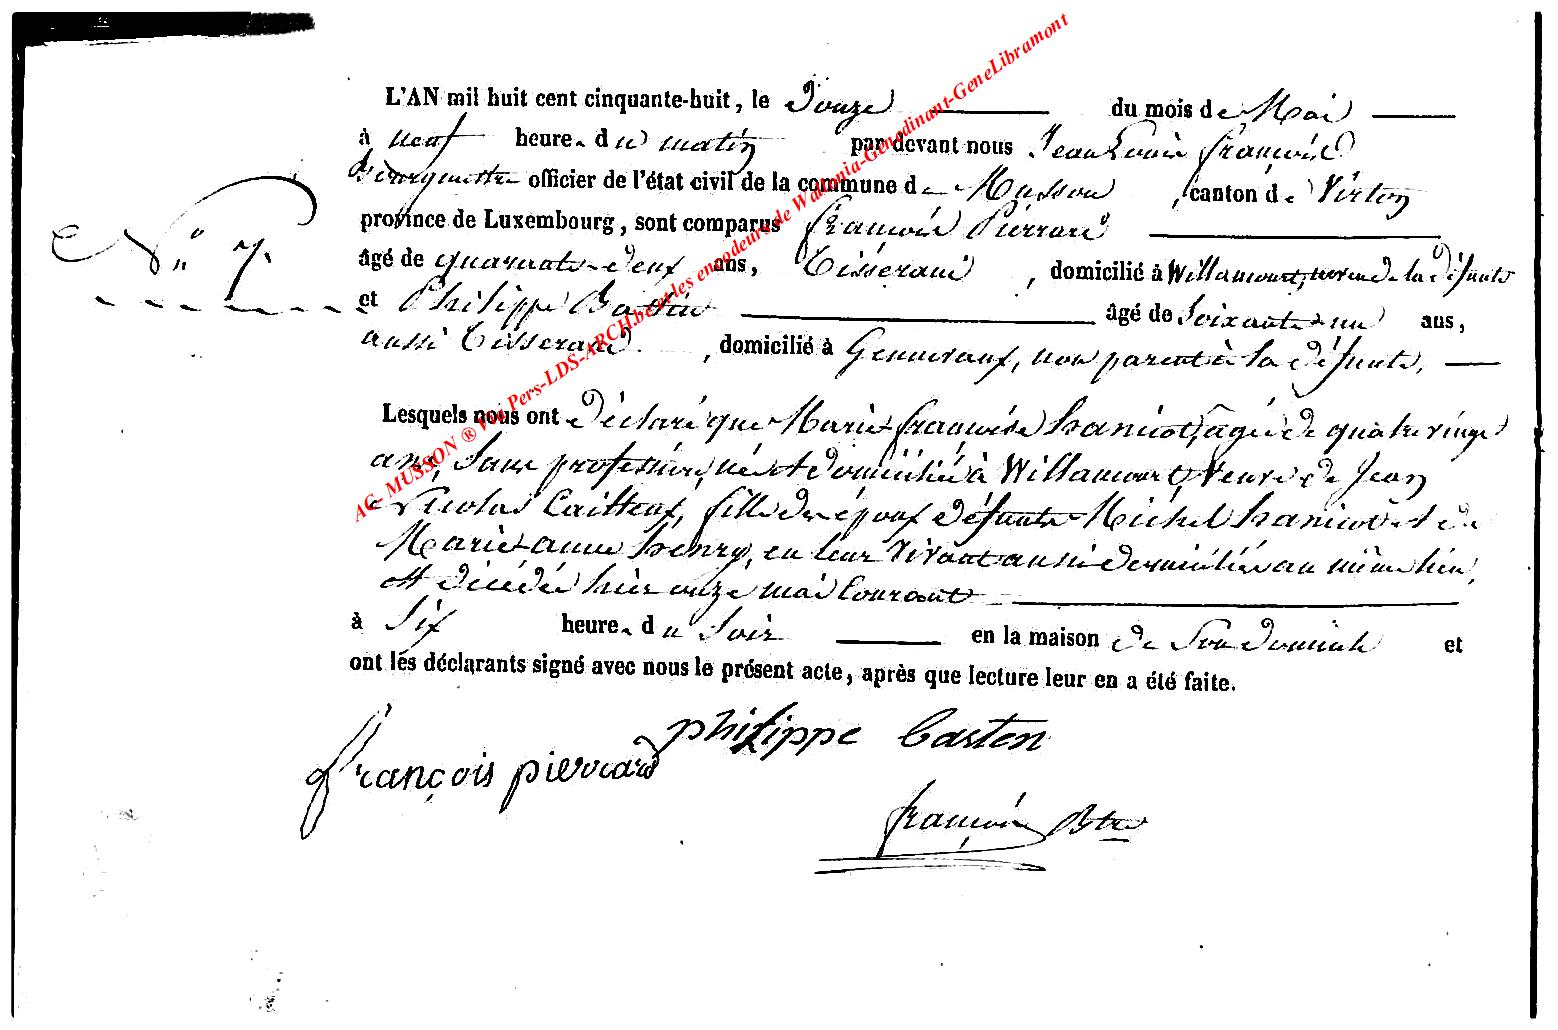 L'AN mil huit cent cinquante-huit, le Douze du mois de Mai
à neuf heure. du matin par devant nous Jean Louis François
Bourgmestre officier de l'état civil de la commune de Musson, canton de Virton
province de Luxembourg, sont comparus François Pierrard
âgé de quarante-deux ans, Tisserand, domicilié à Willancourt, neveu de la défunte
N° 7.
et Philippe Bastin âgé de Soixante-un ans,
aussi Tisserand, domicilié à Gennevaux, non parent à la défunte,
Lesquels nous ont Déclaré que Marie françoise hanicot, agée de quatre vingt
ans, Sans profession, née et domiciliée à Willancourt, Veuve de Jean
Nicolas Cailteux, fille des époux défunts Michel hanicot et de
Marie-anne henry, en leur Vivant aussi domiciliés au même lieu,
est décédée hier onze mai Courant
à Six heure. du Soir en la maison de Son domicile et
ont les déclarants signé avec nous le présent acte, après que lecture leur en a été faite.
philippe basten
françois pierrard
françois Btre
AC- MUSSON ® Via Pers-LDS-ARCH.be et les encodeurs de Wallonia-Genedinant-GeneLibramont